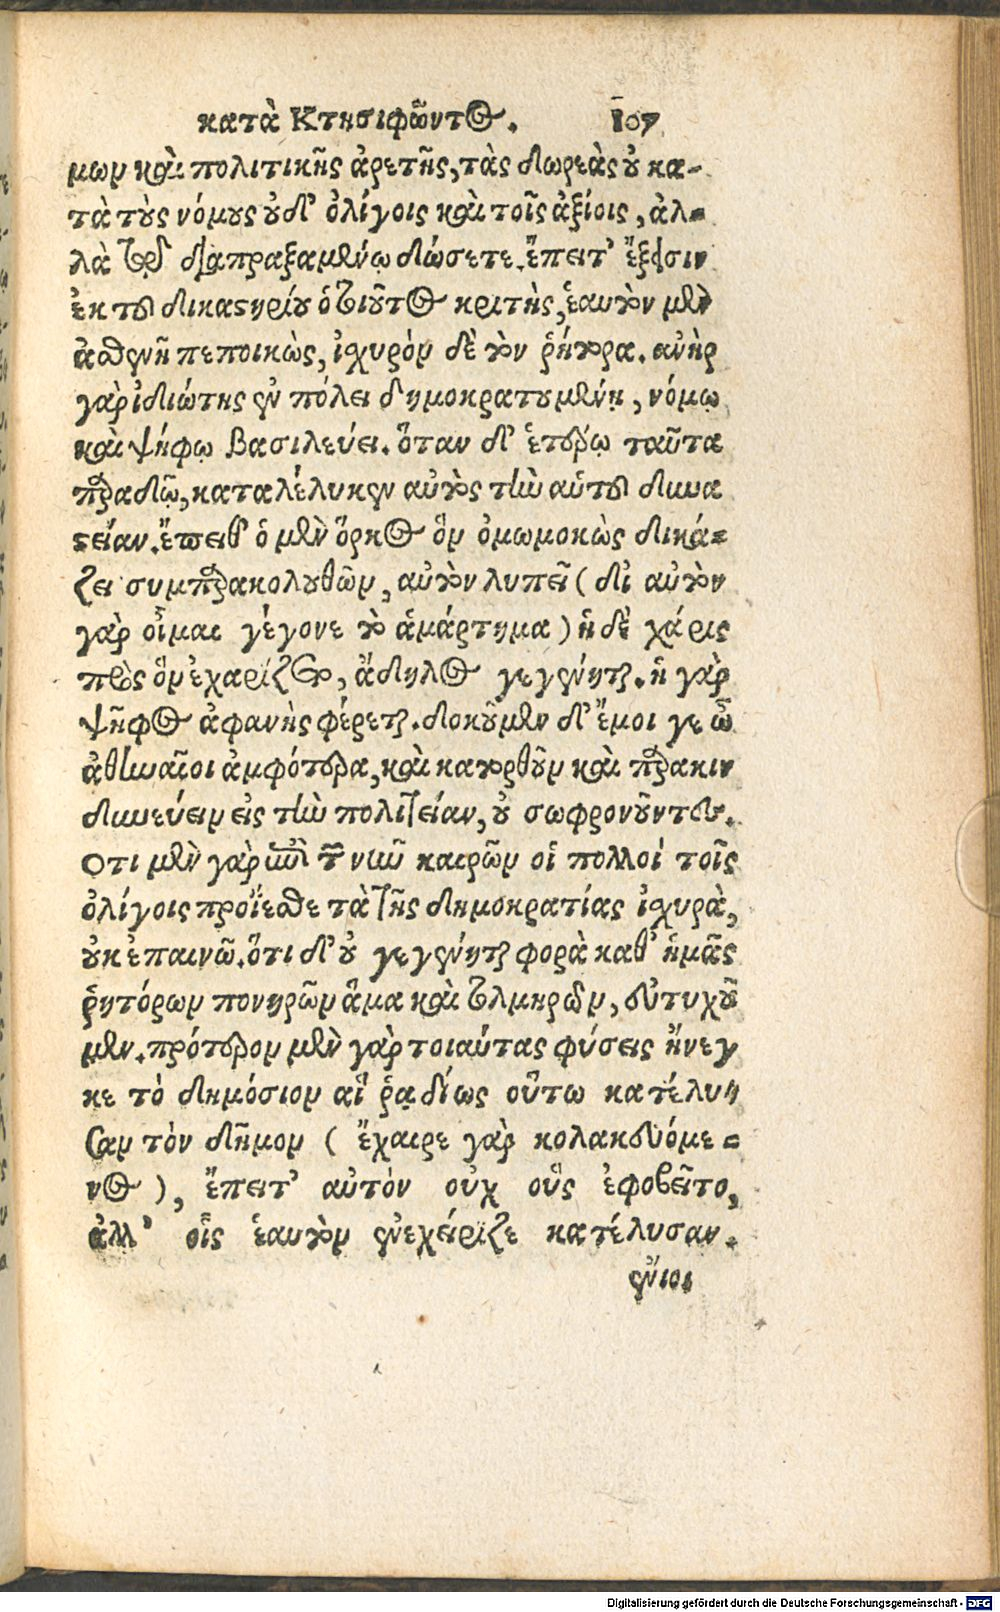 κατὰ Κτησιφῶντος. 107
μων καὶ πολιτικῆς ἀρετῆς, τὰς δωρεὰς οὐ κα-
τὰ τοὺς νόμους οὐδ' ὀλίγοις καὶ τοῖς ἀξίοις, ἀλ-
λὰ τῷ διαπραξαμένῳ δώσετε. ἔπειτ' ἔξεισιν
ἐκ τοῦ δικαστηρίου ὁ τοιοῦτος κριτὴς, ἑαυτὸν μὲν
ἀσθενῆ πεποικὼς, ἰσχυρὸν δὲ τὸν ῥήτορα. ἀνὴρ
γὰρ ἰδιώτης ἐν πόλει δημοκρατουμένῃ, νόμῳ
καὶ ψήφῳ βασιλεύει. ὅταν δ' ἑτέρῳ ταῦτα
παραδῷ, καταλέλυκεν αὐτὸς τὴν αὑτοῦ δυνα
στείαν. ἔπειθ' ὁ μὲν ὅρκος ὃν ὀμωμοκὼς δικά-
ζει συμπαρακολουθῶν, αὐτὸν λυπεῖ (δι' αὐτὸν
γὰρ οἶμαι γέγονε τὸ ἁμάρτημα) ἡ δὲ χάρις
πρὸς ὃν ἐχαρίζετο, ἄδηλος γεγένηται. ἡ γὰρ
ψῆφος ἀφανὴς φέρεται. δοκοῦμεν δ' ἔμοι γε ὦ
ἀθηναῖοι ἀμφότερα, καὶ κατορθοῦν καὶ παρακιν
δυνεύειν εἰς τὴν πολιτείαν, οὐ σωφρονοῦντες.
Οτι μὲν γὰρ ἐπὶ τῶν νῦν καιρῶν οἱ πολλοί τοῖς
ὀλίγοις προΐεσθε τὰ τῆς δημοκρατίας ἰσχυρὰ,
οὐκ ἐπαινῶ. ὅτι δ' οὐ γεγένηται φορὰ καθ' ἡμᾶς
ῥητόρων πονηρῶν ἅμα καὶ τολμηρῶν, εὐτυχοῦ
μεν. πρότερον μὲν γὰρ τοιαύτας φύσεις ἤνεγ
κε τὸ δημόσιον αἳ ῥᾳδίως οὕτω κατέλυ-
σαν τὸν δῆμον (ἔχαιρε γὰρ κολακευόμε-
νος), ἔπειτ' αὐτὸν οὐχ οὓς ἐφοβεῖτο,
ἀλλ' οἷς ἑαυτὸν ἐνεχείριζε κατέλυσαν.
ἔνιοι
Digitalisierung gefördert durch die Deutsche Forschungsgemeinschaft - DFG